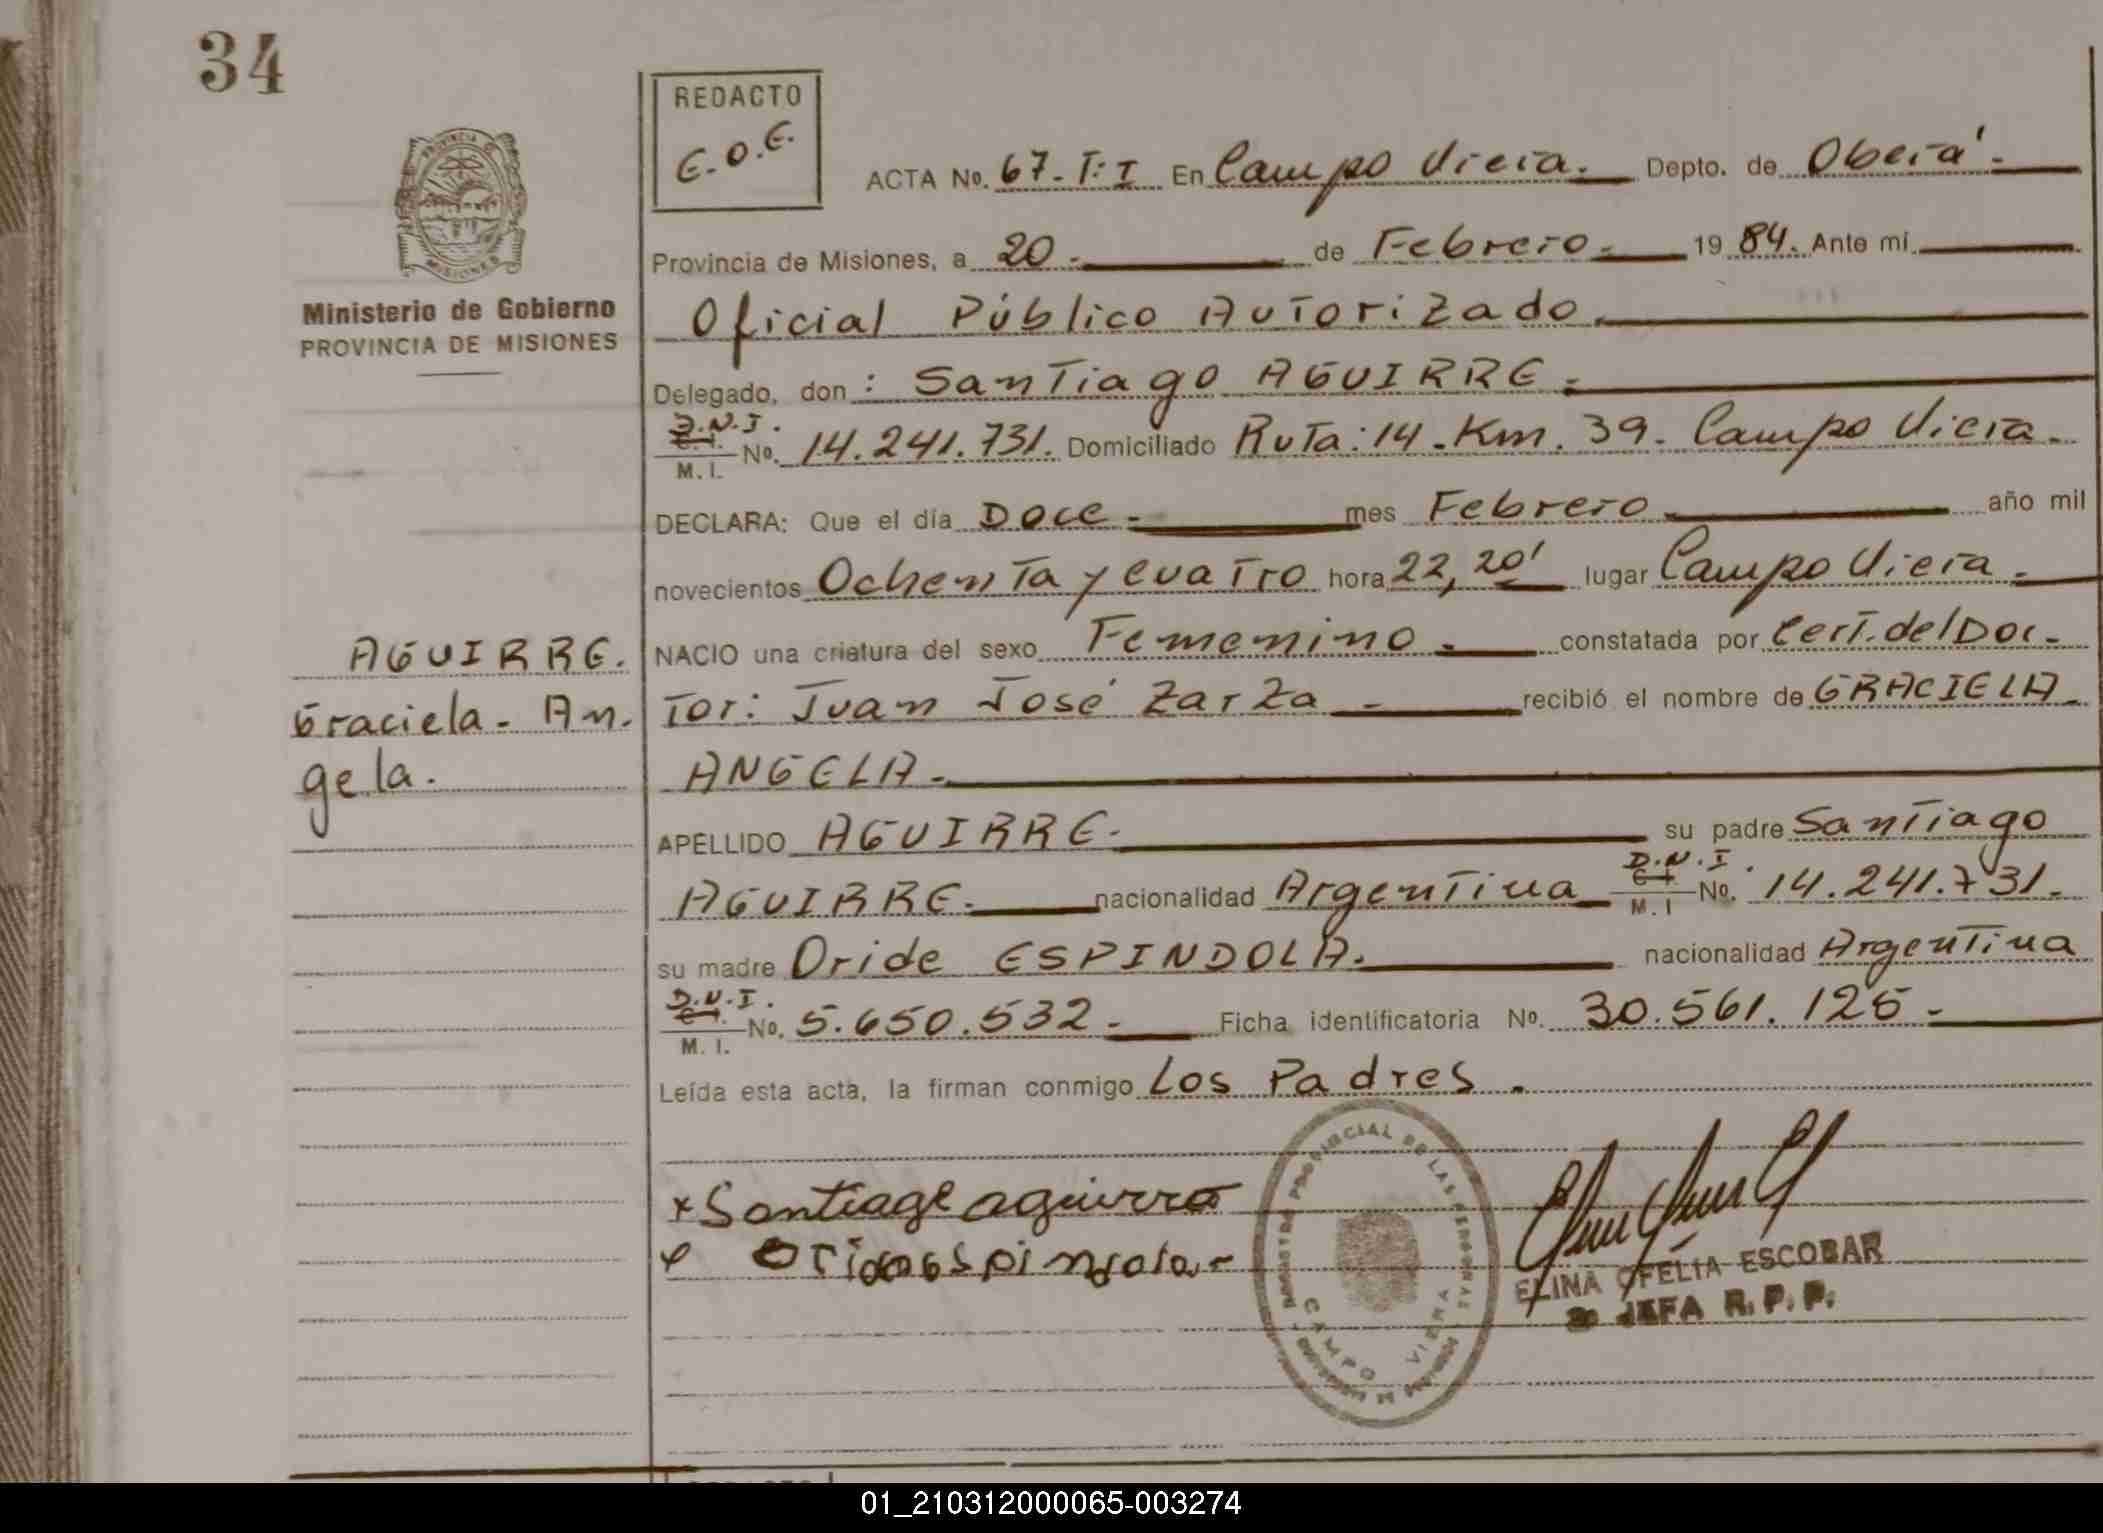 34
REDACTO
E.O.E.
ACTA No. 67-T:I En Campo Viera. Depto. de Oberá.
PROVINCIA DE
MISIONES
Provincia de Misiones, a 20. de Febrero. 19 84. Ante mí.
Ministerio de Gobierno
PROVINCIA DE MISIONES
Oficial Público Autorizado.
Delegado, don: Santiago AGUIRRE.
D.N.I.
C.I.
M. I. No. 14.241.731. Domiciliado Ruta: 14 - Km. 39. Campo Viera.
DECLARA: Que el día Doce. mes Febrero año mil
novecientos Ochenta y cuatro hora 22,20' lugar Campo Viera.
NACIO una criatura del sexo Femenino. constatada por Cert. del Doc-
tor: Juan José Zarza recibió el nombre de GRACIELA
ANGELA.
AGUIRRE.
Graciela. An.
gela.
APELLIDO AGUIRRE. su padre Santiago
AGUIRRE. nacionalidad Argentina D.N.I. C.I. M. I No. 14.241.731.
su madre Oride ESPINDOLA. nacionalidad Argentina
D.N.I.
C.I.
M. I. No. 5.650.532. Ficha identificatoria No. 30.561.125.
Leída esta acta, la firman conmigo Los Padres.
x Santiago aguirre
CAMPO VIERA
ELINA OFELIA ESCOBAR
JEFA R. P. P.
01_210312000065-003274